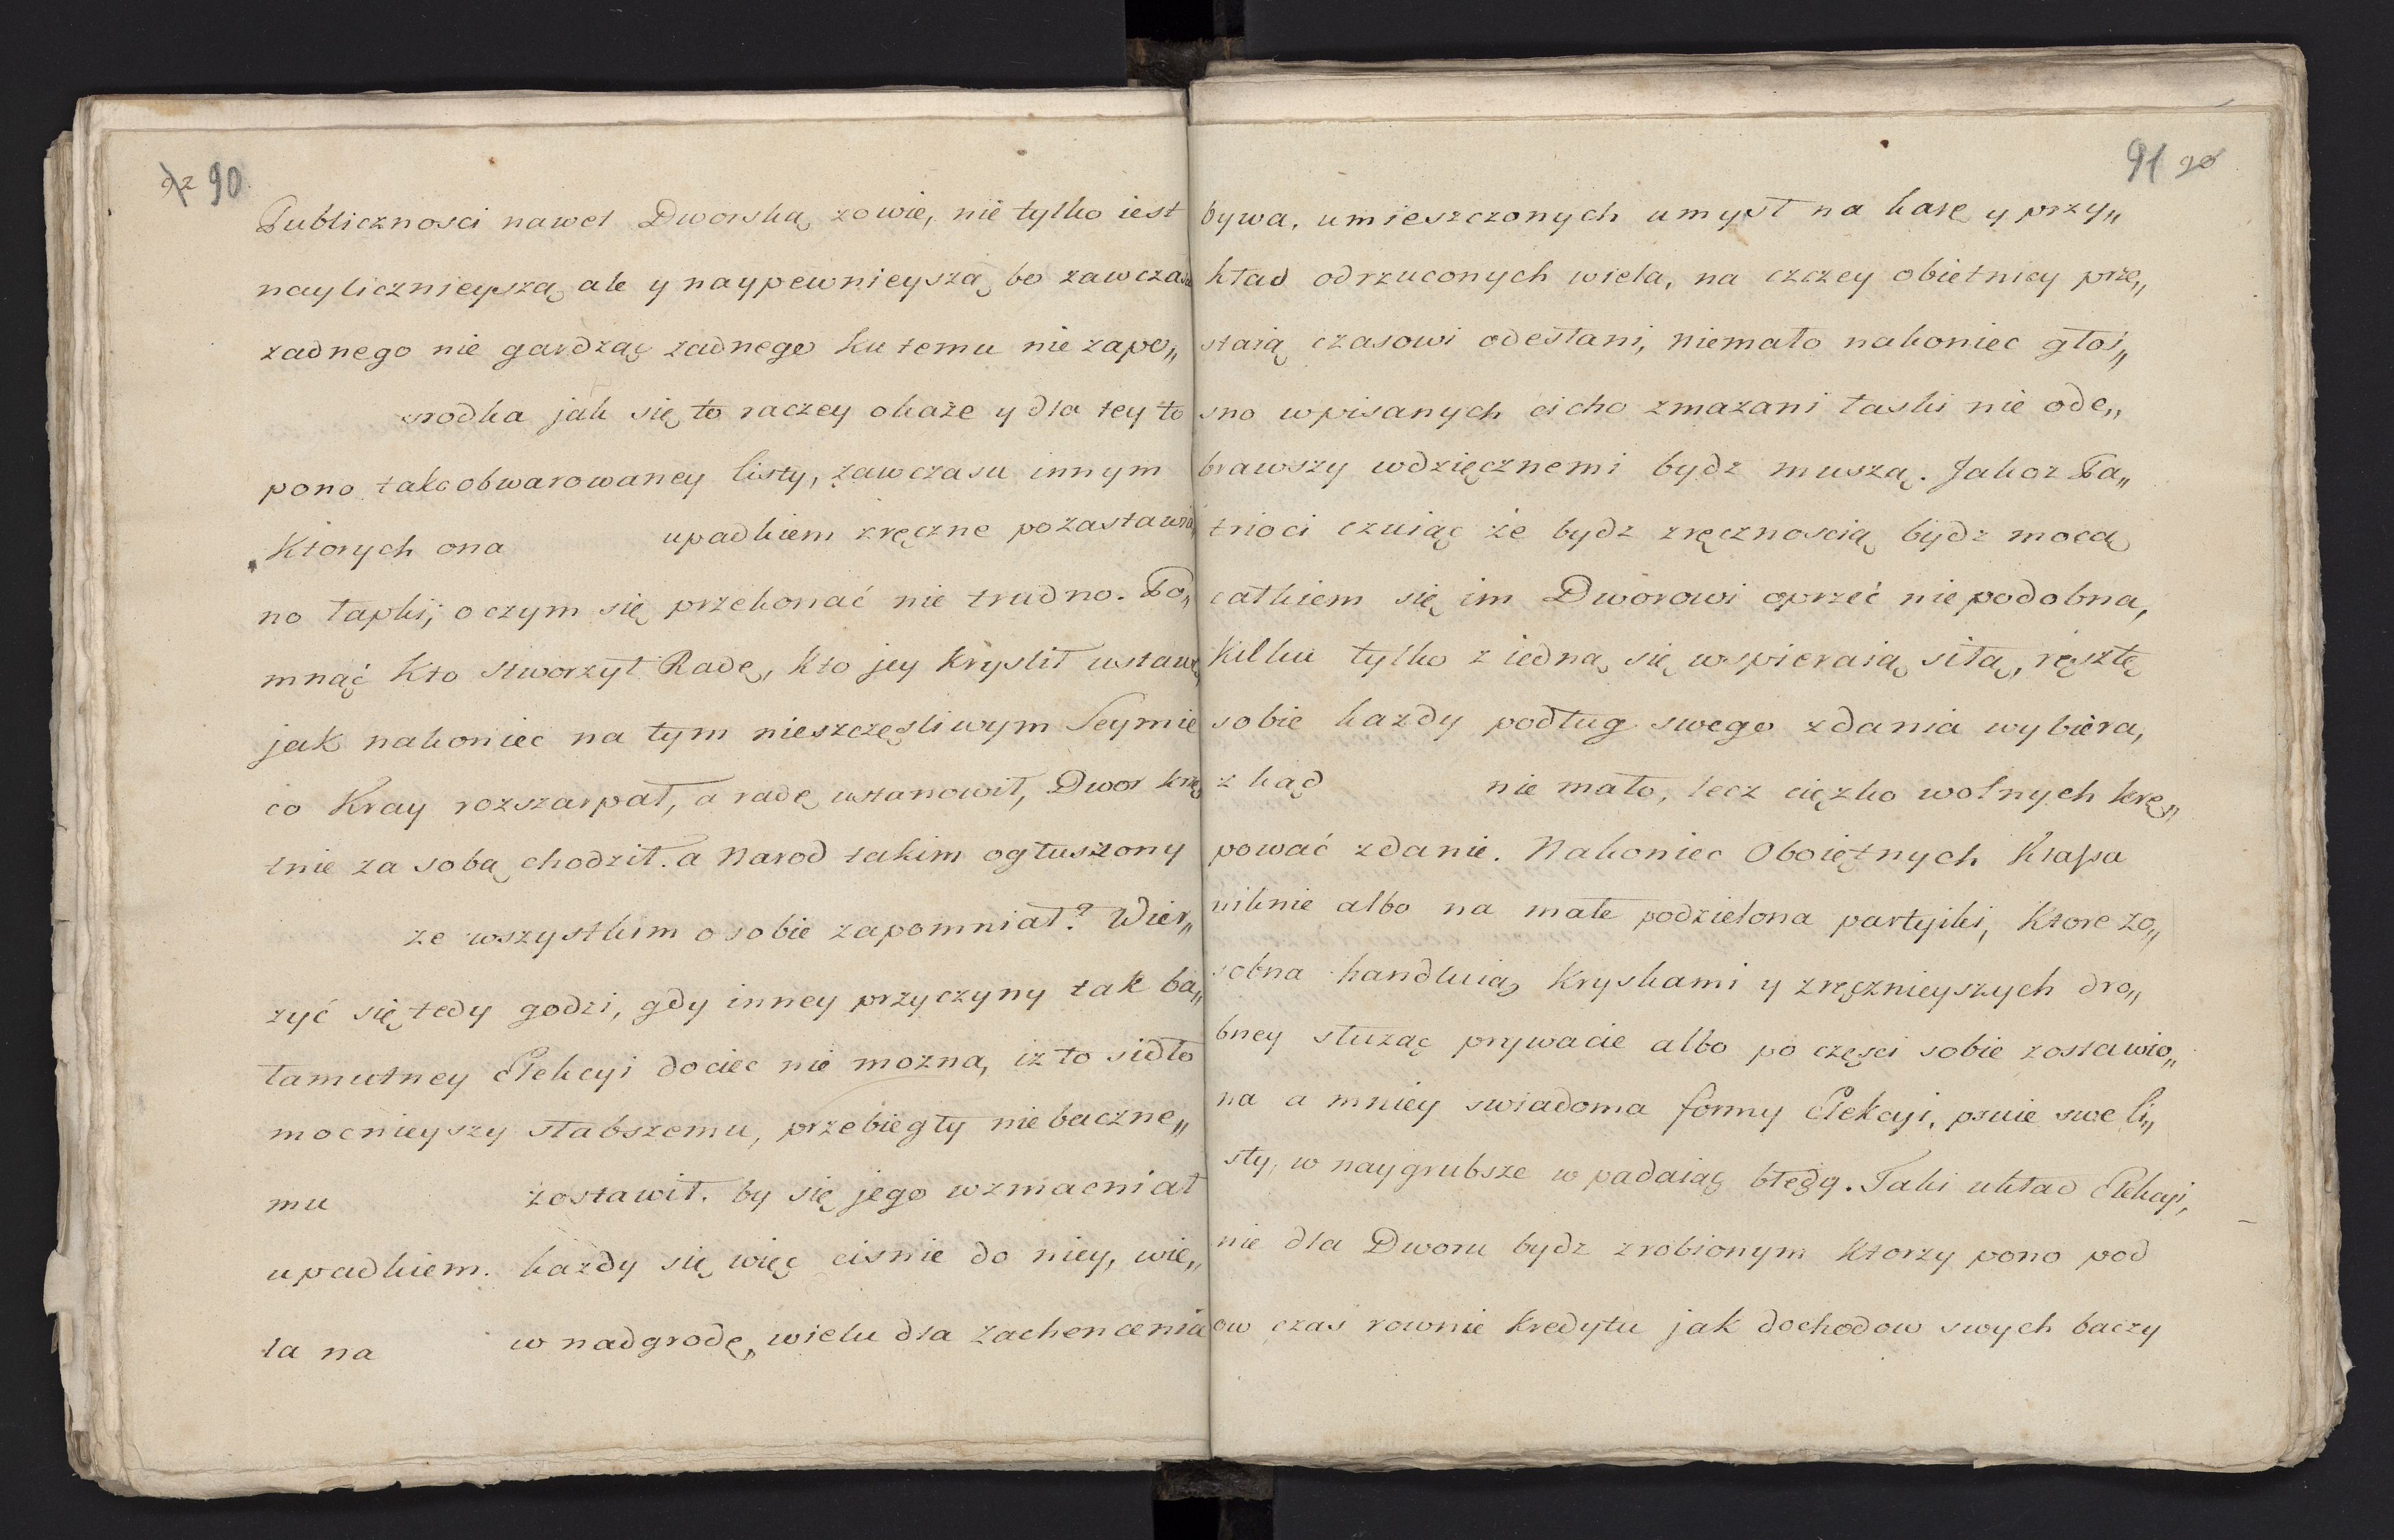 90
Publicznosci nawet Dworską zowie, nie tylko iest
nayliczniejszą ale y naypewnieyszą bo zawczasu
zadnego nie gardząc zadnego ku temu nie zapo„
srodka jak się to raczey okaże y dla tey to
pono tak obwarowaney listy, zawczasu innym
Ktorych ona upadkiem zręczne pozastawia„
no łapki; o czym się przekonać nie trudno. Po„
mnąć Kto stworzył Radę, Kto jey Kryslił ustawę,
jak nakoniec na tym nieszczęsliwym Seymie
co Kray rozszarpał, a radę ustanowił, Dwor krę
tnie za sobą chodził. a Narod takim ogłuszony
ze wszystkim o sobie zapomniał? Wier„
zyć się tedy godzi, gdy inney przyczyny tak ba„
łamutney Elekcyi dociec nie mozna, iz to sidło
mocnieyszy słabszemu, przebiegły niebaczne„
mu zostawił. by się jego wzmacniał
upadkiem. każdy się więc cisnie do niey, wie„
la na w nadgrodę, wielu dla zachencenia
91 90
bywa, umieszczonych umysł na karę y przy„
kład odrzuconych wiela, na czczey obietnicy prze„
staią czasowi odesłani, niemało nakoniec głoś„
sno wpisanych cicho zmazani łaski nie ode„
brawszy wdzięcznemi bydz muszą. Jakoz Pa„
trioci czuiąc że bydz zręcznoscią bydz mocą
całkiem się im Dworowi oprzeć nie podobna,
Kilku tylko z iedną się wspieraią siłą, resztę
sobie kazdy podług swego zdania wybiera,
z kąd nie mało, lecz cięzko wolnych krę„
pować zdanie. Nakoniec Oboiętnych Klassa
niknie albo na małe podzielona partyiki, Ktore zo„
sobna handluią Kryskami y zręcznieyszych dro„
bney służąc prywacie albo po częsci sobie zostawio„
na a mniey swiadoma formy Elekcyi, psuie swe li„
sty, w naygrubsze wpadaiąc błędy. Taki układ Elekcyi,
nie dla Dworu bydz zrobionym Ktorzy pono pod
ow czas rownie Kredytu jak dochodow swych baczy